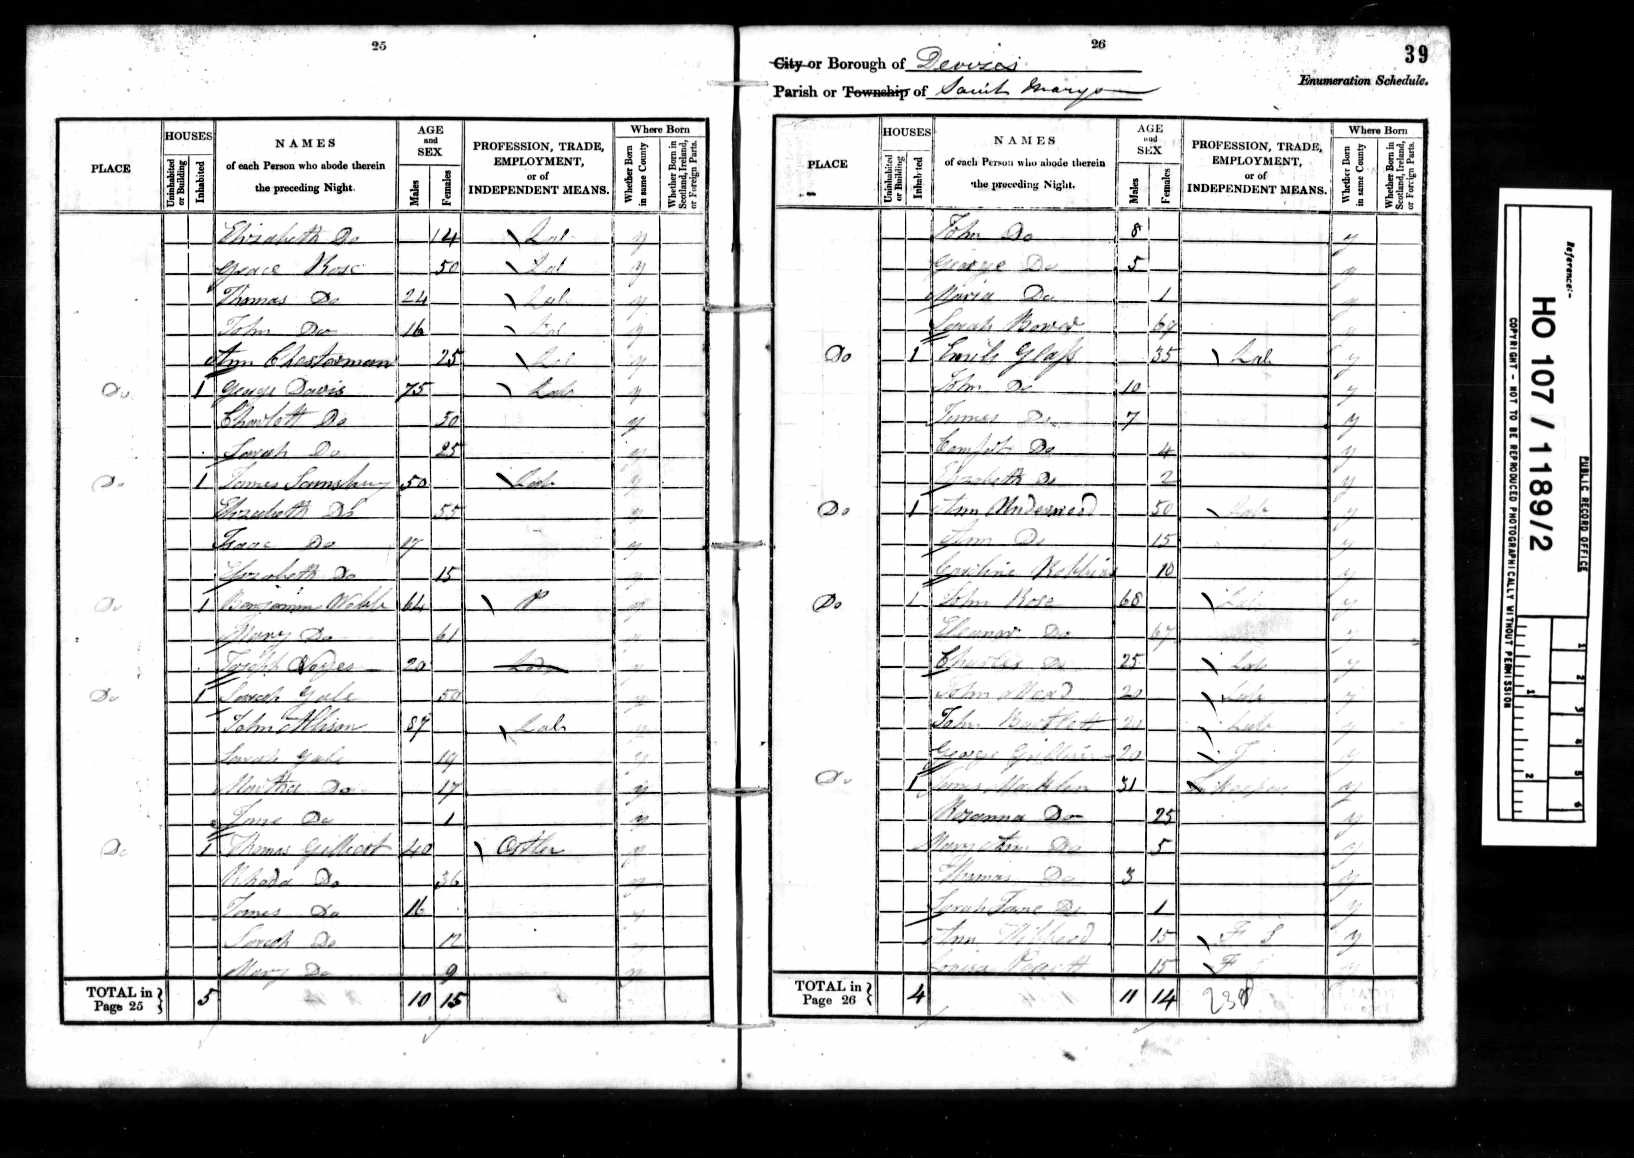 25
PLACE
HOUSES
Uninhabited or Building
Inhabited
NAMES
of each Person who abode therein
the preceding Night.
AGE
and
SEX
Males
Females
PROFESSION, TRADE,
EMPLOYMENT,
or of
INDEPENDENT MEANS.
Where Born
Whether Born in same County
Whether Born in Scotland, Ireland, or Foreign Parts.
Elizabeth Do 14 Lab y
Grace Rose 50 Lab y
Thomas Do 24 Lab y
John Do 16 Lab y
Ann Chesterman 25 Lab y
Do 1 George Davis 75 Lab y
Charlott Do 30 y
Sarah Do 25 y
Do 1 James Samsbury 50 Lab y
Elizabeth Do 55 y
Isaac Do 17 y
Elizabeth Do 15 y
Do 1 Benjamin Webb 64 P y
Mary Do 61 y
Joseph Noyes 20 Lab y
Do 1 Sarah Gale 50 y
John Allison 87 Lab y
Sarah Gale 19 y
Martha Do 17 y
Jane Do 1 y
Do 1 Thomas Gilbert 40 Ostler y
Rhoda Do 36 y
James Do 16 y
Sarah Do 12 y
Mary Do 9 y
TOTAL in Page 25 } 5 10 15
26
39
City or Borough of Devizes
Enumeration Schedule.
Parish or Township of Saint Marys
PLACE
HOUSES
Uninhabited or Building
Inhabited
NAMES
of each Person who abode therein
the preceding Night.
AGE
and
SEX
Males
Females
PROFESSION, TRADE,
EMPLOYMENT,
or of
INDEPENDENT MEANS.
Where Born
Whether Born in same County
Whether Born in Scotland, Ireland, or Foreign Parts.
John Do 8 y
George Do 5 y
Maria Do 1 y
Sarah 67 y
Do 1 Glass 35 Lab y
John Do 10 y
James Do 7 y
Comfort Do 4 y
Elizabeth Do 2 y
Do 1 Ann Underwood 50 Lab y
Ann Do 15 y
Caroline Robbins 10 y
Do 1 John Rose 68 Lab y
Eleanor Do 67 y
Charles Do 25 Lab y
John Mead 20 Lab y
John Bartlett 20 Lab y
George 20 J y
Do 1 James 31 y
Rozanna Do 25 y
Mary Ann Do 5 y
Thomas Do 3 y
Sarah Jane Do 1 y
Ann 15 F S y
Louisa 15 F y
TOTAL in Page 26 } 4 11 14 238
Reference:-
HO 107 / 1189/2
PUBLIC RECORD OFFICE
COPYRIGHT - NOT TO BE REPRODUCED PHOTOGRAPHICALLY WITHOUT PERMISSION
1
2
3
4
5
6
1
2